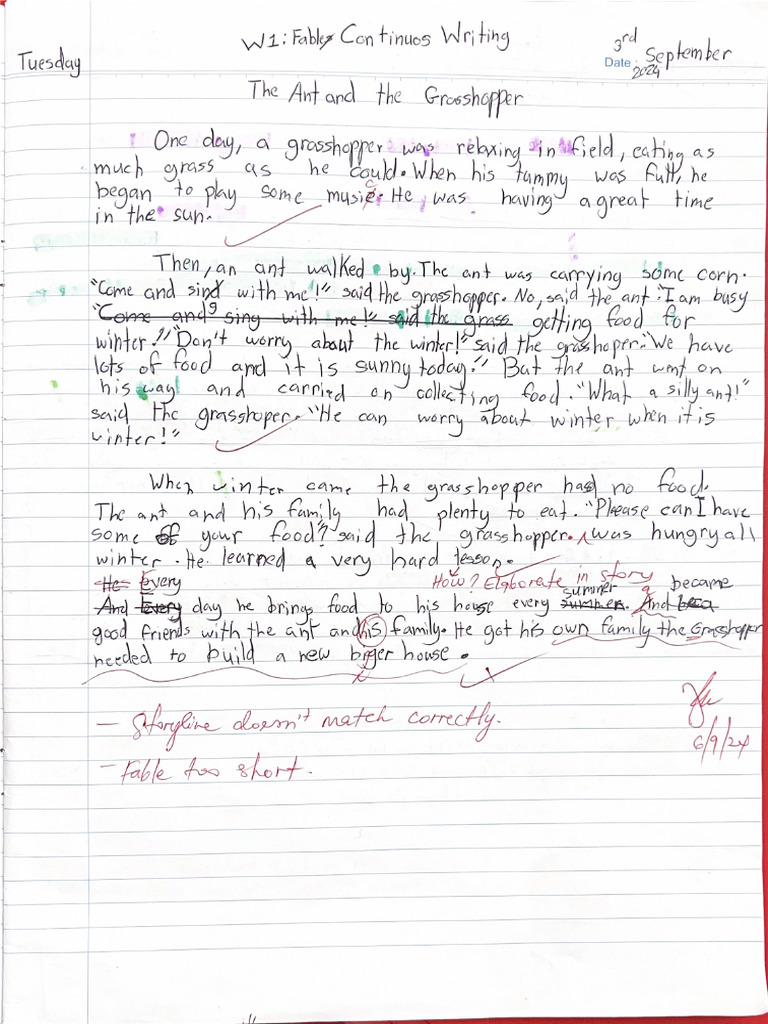 W1: Fable Continuos Writing
3rd September
Tuesday
Date: 2024
The Ant and the Grasshopper
One day, a grasshopper was relaxing in field, eating as
much grass as he could. When his tummy was full, he
began to play some music. He was having a great time
in the sun.
Then, an ant walked by. The ant was carrying some corn.
"Come and sing with me!" said the grasshopper. No, said the ant "I am busy
"Come and sing with me!" said the grass getting food for
winter!" "Don't worry about the winter!" said the grasshoper. "We have
lots of food and it is sunny today." But the ant went on
his way and carried on collecting food. "What a silly ant!"
said the grasshoper. "He can worry about winter when it is
winter!"
When winter came the grasshopper had no food.
The ant and his family had plenty to eat. "Please can I have
some of your food? said the grasshopper. was hungry all
winter. He learned a very hard lesson.
He Every How? Elaborate in story
And Every day he brings food to his house every summer summer. And became
good friends with the ant and his family. He got his own family the Grasshopper
needed to build a new biger house.
- Storyline doesn't match correctly.
- Fable too short.
6/9/24